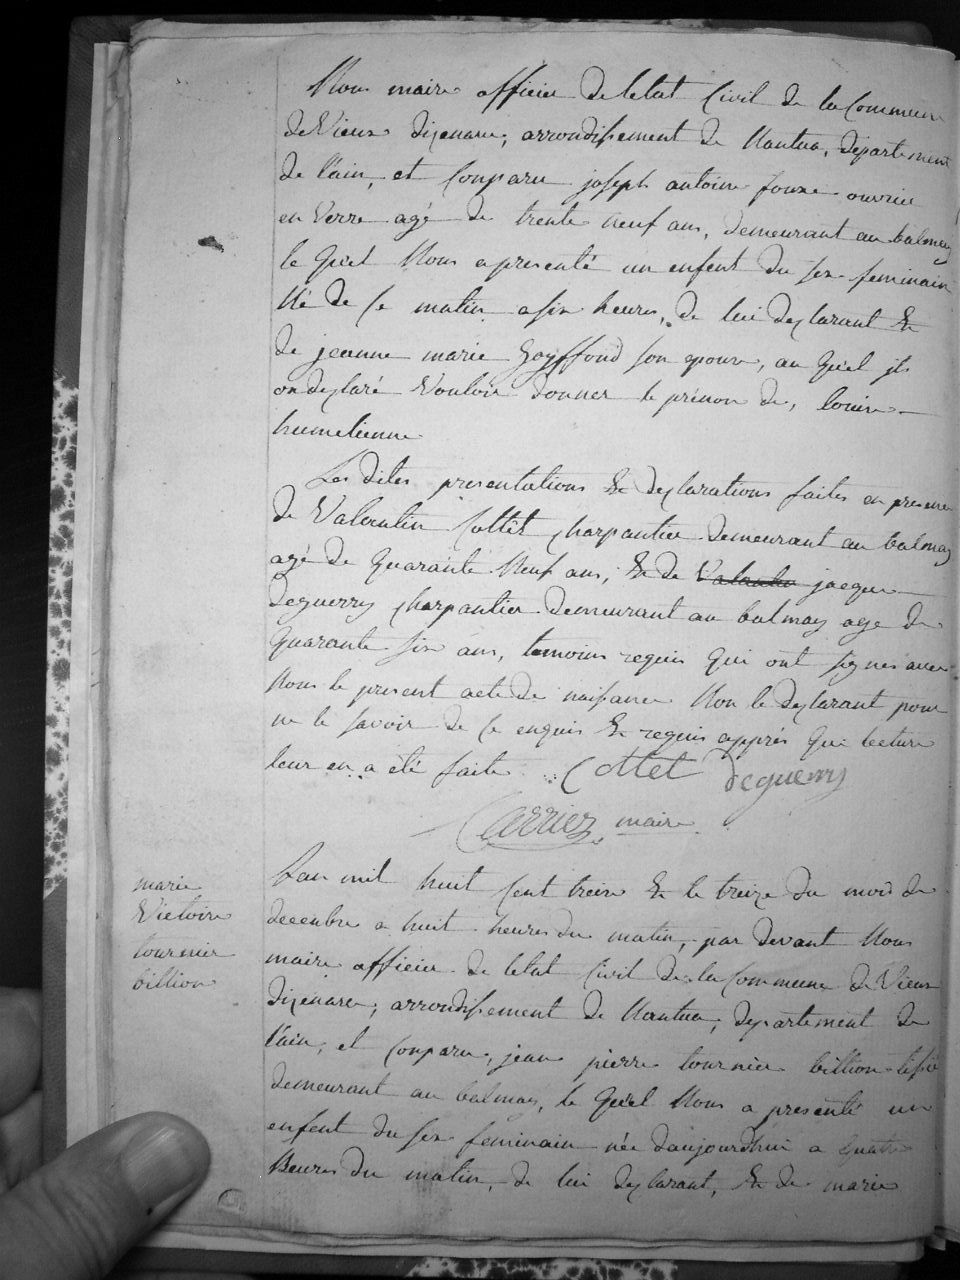 Nous maire officier de letat Civil de la Commune
de Vieux dizenave, arrondissement de Nantua, département
de l'ain, et Comparu joseph antoine ouvrier
en verre agé de trente neuf ans, demeurant au balmay
le Quel Nous a presenté un enfent du sex feminain
Né de ce matin a six heures, de lui declarant &
de jeanne marie Goyffond son epouse, au Quel ils
on declaré Vouloir donner le prénon de, louise
humelienne
Les dites presentations & declarations faites en presence
de Valentin Cottet charpantier demeurant au balmay
agé de Quarante Neuf ans, & de Valentin jacque
deguerry charpantier demeurant au balmay age de
Quarante six ans, temoins requis Qui ont signes avec
Nous le present acte de naissance Non le declarant pour
ne le savoir de ce enquis & requis apprés Que lecture
leur en a été faite Cottet deguerry
Carrier maire
marie
Victoire
tournier
billion
Lan mil huit Cent treize & le treize du mois de
decenbre a huit heures du matin, par devant Nous
maire officier de letat Civil de la Commune de Vieux
dizenave, arrondissement de Nantua, departement de
l'ain, et Conparu, jean pierre tournier billion
demeurant au balmay, le Quel Nous a presenté un
enfent du sex feminain née daujourdhui a quatre
heures du matin, de lui declarant, & de marie